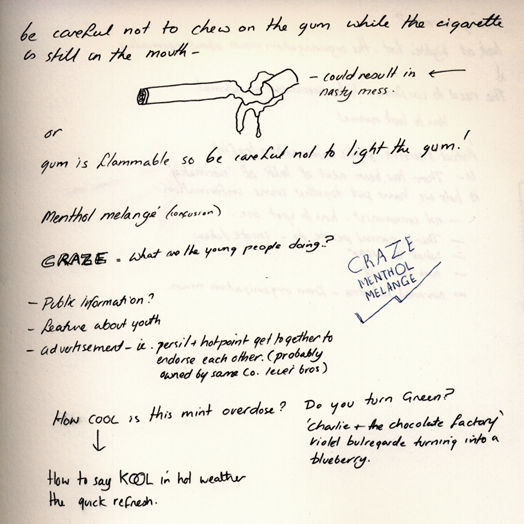 be careful not to chew on the gum while the cigarette
is still in the mouth –
– could result in ←
nasty mess.
or
gum is flammable so be careful not to light the gum!
Menthol melangé (confusion)
CRAZE = what are the young people doing?
CRAZE
MENTHOL
MELANGE
– Public Information?
– feature about youth
– advertisement – ie. persil + hotpoint get together to
endorse each other. (probably
owned by same Co. lever bros)
How COOL is this mint overdose?
↓
How to say KOOL in hot weather
the quick refresh.
Do you turn Green?
'Charlie + the chocolate factory'
violet bulregarde turning into a
blueberry.